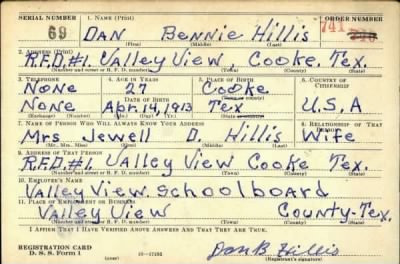 SERIAL NUMBER 1. NAME (Print) ORDER NUMBER
69 DAN Bennie Hillis 741
(First) (Middle) (Last)
2. ADDRESS (Print)
R.F.D.#1. Valley View Cooke, Tex.
(Number and street or R. F. D. number) (Town) (County) (State)
3. TELEPHONE 4. AGE IN YEARS 5. PLACE OF BIRTH 6. COUNTRY OF CITIZENSHIP
None 27 Cooke
DATE OF BIRTH
None Apr. 14, 1913 Tex. U.S.A
(Mo.) (Day) (Yr.) (State or country)
7. NAME OF PERSON WHO WILL ALWAYS KNOW YOUR ADDRESS 8. RELATIONSHIP OF THAT PERSON
Mrs Jewell D. Hillis Wife
(Mr., Mrs., Miss) (First) (Middle) (Last)
9. ADDRESS OF THAT PERSON
R.F.D.#1. Valley View Cooke Tex.
(Number and street or R. F. D. number) (Town) (County) (State)
10. EMPLOYER'S NAME
Valley View School board
11. PLACE OF EMPLOYMENT OR BUSINESS
Valley View County-Tex.
(Number and street or R. F. D. number) (Town) (County) (State)
I AFFIRM THAT I HAVE VERIFIED ABOVE ANSWERS AND THAT THEY ARE TRUE.
REGISTRATION CARD
D. S. S. Form 1 Dan B Hillis
(Registrant's signature)